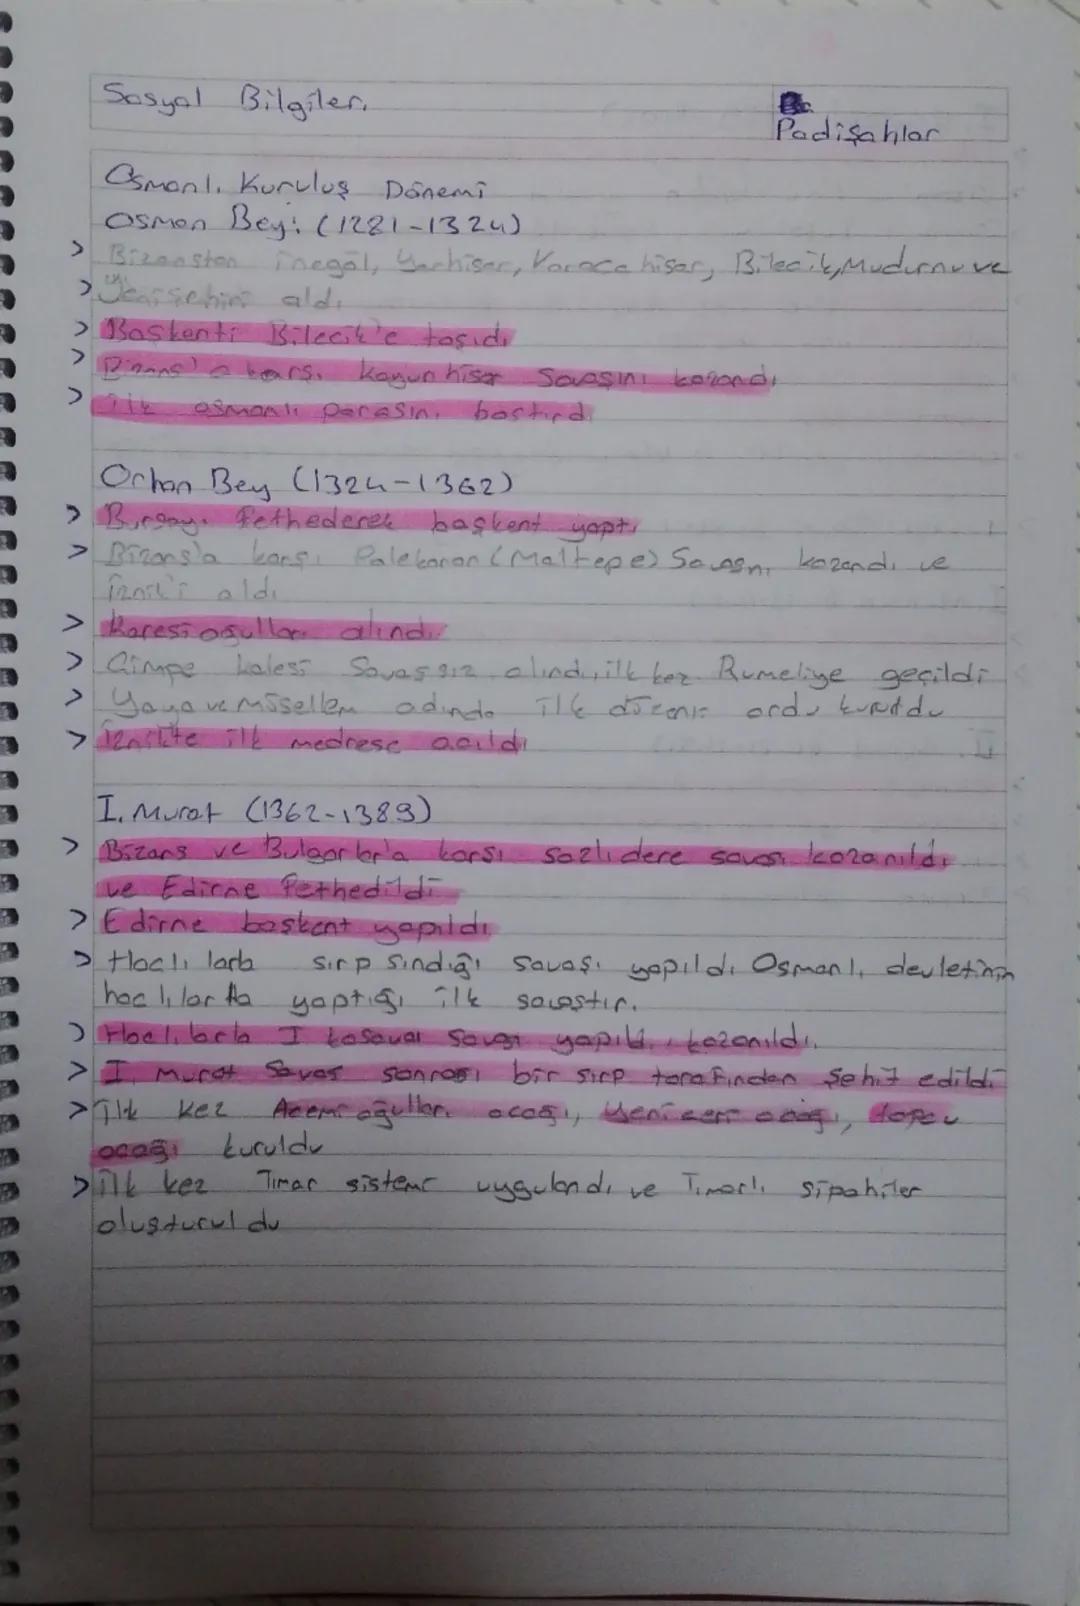 Sosyal Bilgiler.
Padişahlar
Osmanlı Kuruluş Dönemi
Osman Bey: (1281-1324)
> Bizanstan İnegöl, Yarhisar, Karacahisar, Bilecik, Mudurnu ve
> Yenişehiri aldı
> Başkenti Bilecik'e taşıdı
> Bizans'a karşı Koyunhisar Savaşını kazandı
> ilk osmanlı parasını bastırdı
Orhan Bey (1324-1362)
> Bursayı fethederek başkent yaptı
> Bizans'a karşı Palekanon (Maltepe) Savaşını kazandı ve
İznik'i aldı
> Karesioğulları alındı
> Çimpe kalesi Savaşsız alındı, ilk kez Rumeliye geçildi
> Yaya ve müsellem adında ilk düzenli ordu kuruldu
> İznikte ilk medrese açıldı
I. Murat (1362-1389)
> Bizans ve Bulgarlar'a karşı sazlıdere savaşı kazanıldı
ve Edirne Fethedildi
> Edirne başkent yapıldı
> Haclı larla sırp sındığı savaşı yapıldı Osmanlı devletinin
haclılarla yaptığı ilk savaştır.
> Haclılarla I kosavar Savaşı yapıldı, kazanıldı.
> I. Murat Savaş sonrası bir sırp tarafından şehit edildi
> ilk kez Acemi oğulları ocağı, Yeniçeri ocağı, topçu
ocağı kuruldu
> ilk kez Tımar sistemi uygulandı ve Tımarlı sipahiler
oluşturuldu